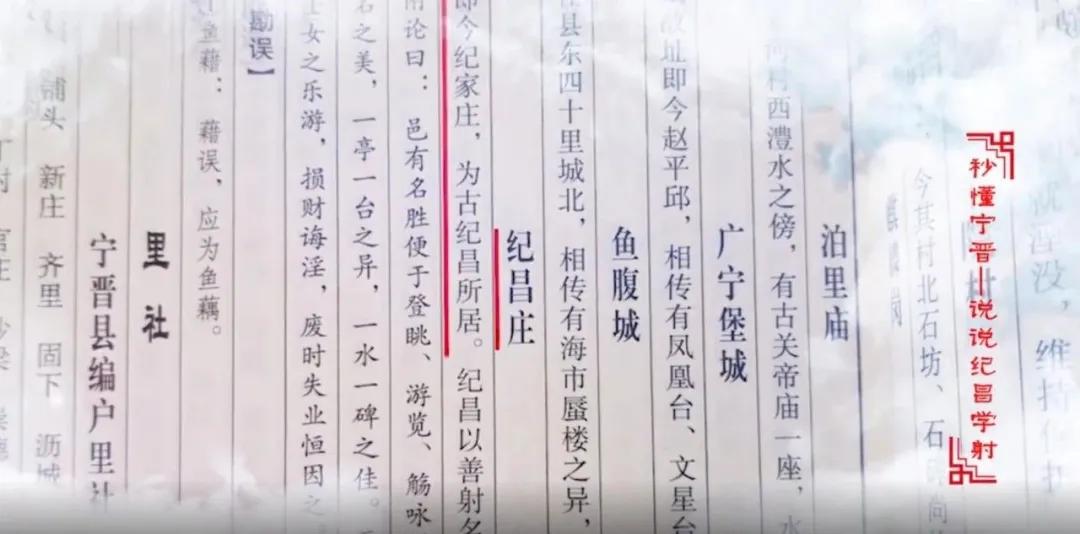 秒懂宁晋—说说纪昌学射
泯没，维持
今其村北石坊、石
泊里庙
村西澧水之傍，有古关帝庙一座，水
广宁堡城
故址即今赵平邱，相传有凤凰台、文星台
鱼腹城
县东四十里城北，相传有海市蜃楼之异，
纪昌庄
即今纪家庄，为古纪昌所居。纪昌以善射名
论曰：邑有名胜便于登眺、游览、觞咏
名之美，一亭一台之异，一水一碑之佳。
士女之乐游，损财诲淫，废时失业恒因之
勘误】
鱼藉：藉误，应为鱼藕。
里社
宁晋县编户里社
铺头 新庄 齐里 固下 沥城